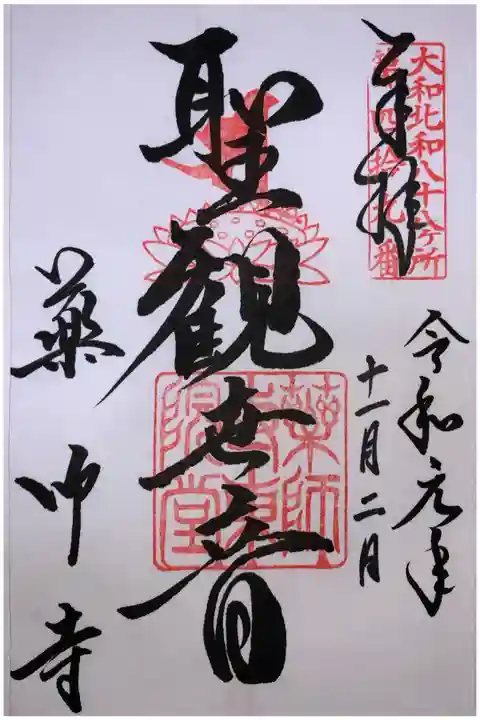 大和北和八十八ケ所
第四拾九番
奉拝
令和元年
十一月二日
聖観世音
薬師寺
東院堂
薬師寺